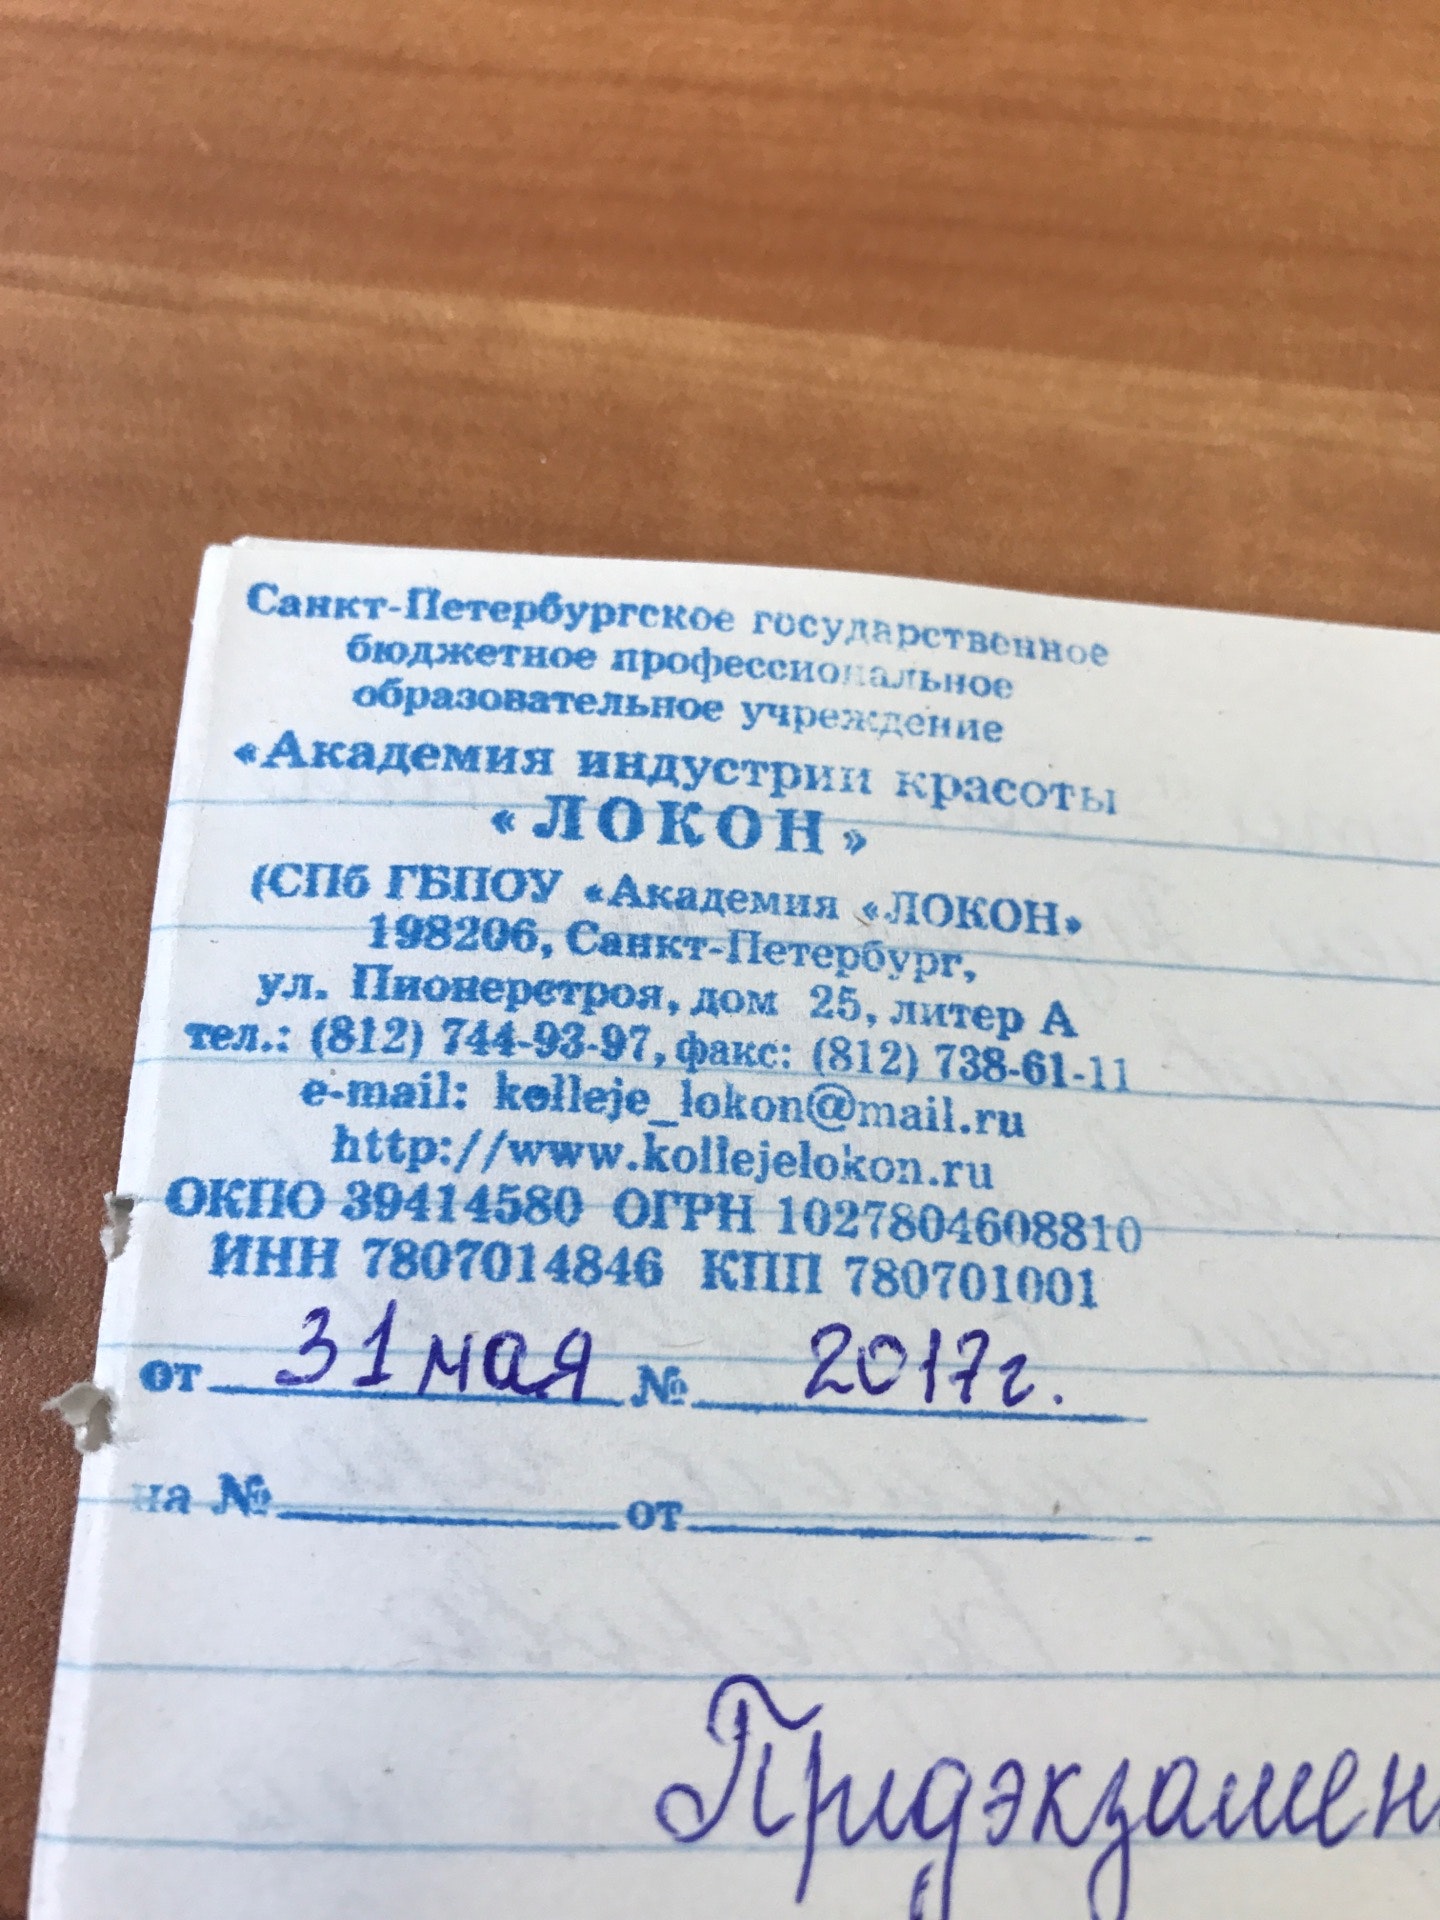 Санкт-Петербургское государственное
бюджетное профессиональное
образовательное учреждение
«Академия индустрии красоты
«ЛОКОН»
(СПб ГБПОУ «Академия «ЛОКОН»
198206, Санкт-Петербург,
ул. Пионерстроя, дом 25, литер А
тел.: (812) 744-93-97, факс: (812) 738-61-11
e-mail: kolleje_lokon@mail.ru
http://www.kollejelokon.ru
ОКПО 39414580 ОГРН 1027804608810
ИНН 7807014846 КПП 780701001
от 31 мая № 2017г.
на № от
Придэкзамен